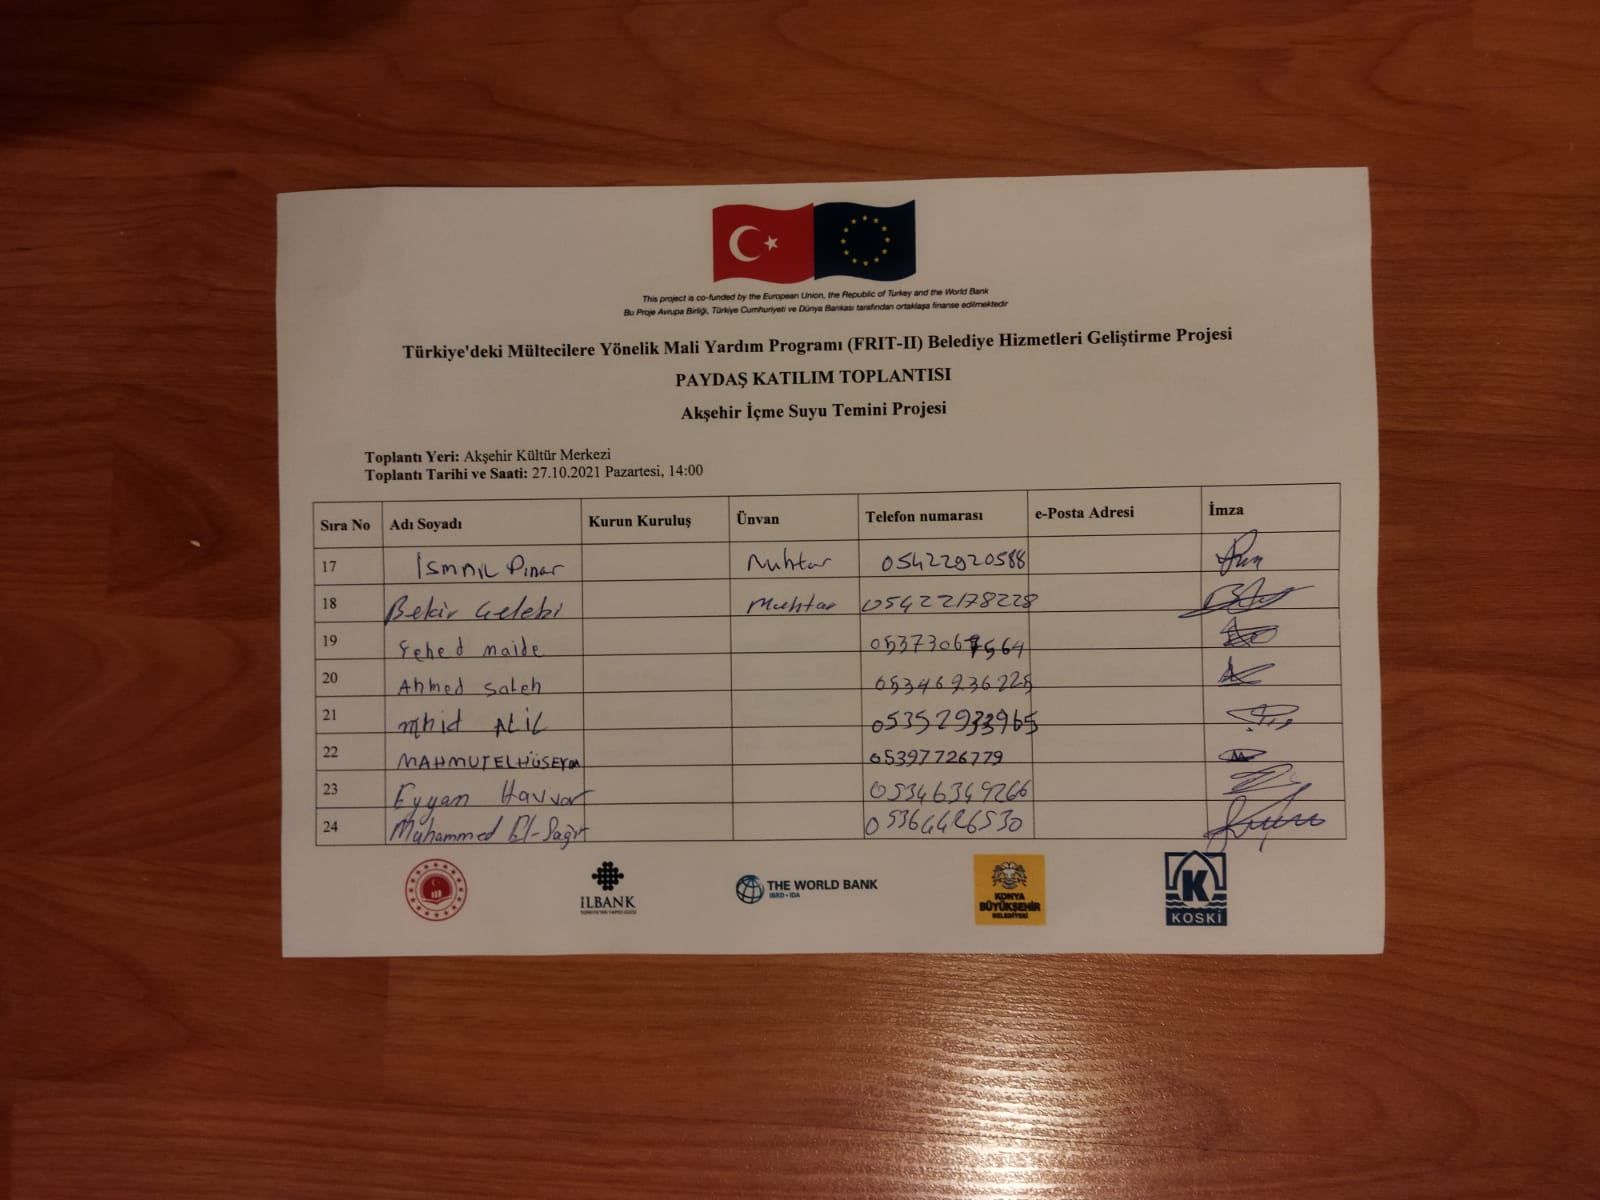 This project is co-funded by the European Union, the Republic of Turkey and the World Bank
Bu Proje Avrupa Birliği, Türkiye Cumhuriyeti ve Dünya Bankası tarafından ortaklaşa finanse edilmektedir
Türkiye'deki Mültecilere Yönelik Mali Yardım Programı (FRIT-II) Belediye Hizmetleri Geliştirme Projesi
PAYDAŞ KATILIM TOPLANTISI
Akşehir İçme Suyu Temini Projesi
Toplantı Yeri: Akşehir Kültür Merkezi
Toplantı Tarihi ve Saati: 27.10.2021 Pazartesi, 14:00
Sıra No Adı Soyadı Kurun Kuruluş Ünvan Telefon numarası e-Posta Adresi İmza
17 İsmail Pınar Muhtar 05422920588
18 Bekir Çelebi Muhtar 05422178228
19 Fehed maide
20 Ahmed Saleh 05346236228
21 ALİL 05352933965
22 MAHMUT ELHÜSEYİN 05397726779
23 Eyyan Havvat 05346349266
24 Muhammed El-Sağır 05364426530
İLBANK
TÜRKİYE'NİN YAPICI GÜCÜ
THE WORLD BANK
IBRD • IDA
KONYA
BÜYÜKŞEHİR
BELEDİYESİ
K
KOSKİ